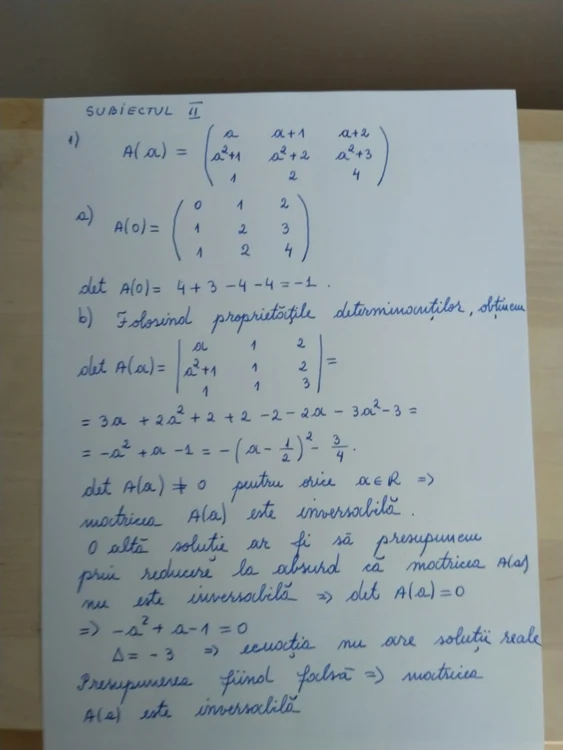 SUBIECTUL II
1) A(a) = ( a a+1 a+2
a²+1 a²+2 a²+3
1 2 4 )
a) A(0) = ( 0 1 2
1 2 3
1 2 4 )
det A(0) = 4 + 3 - 4 - 4 = -1 .
b) Folosind proprietățile determinanților, obținem
det A(a) = | a 1 2
a²+1 1 2
1 1 3 | =
= 3a + 2a² + 2 + 2 - 2 - 2a - 3a² - 3 =
= -a² + a - 1 = -(a - 1/2)² - 3/4 .
det A(a) ≠ 0 pentru orice a ∈ R ⇒
matricea A(a) este inversabilă .
O altă soluție ar fi să presupunem
prin reducere la absurd că matricea A(a)
nu este inversabilă ⇒ det A(a) = 0
⇒ -a² + a - 1 = 0
Δ = -3 ⇒ ecuația nu are soluții reale
Presupunerea fiind falsă ⇒ matricea
A(a) este inversabilă